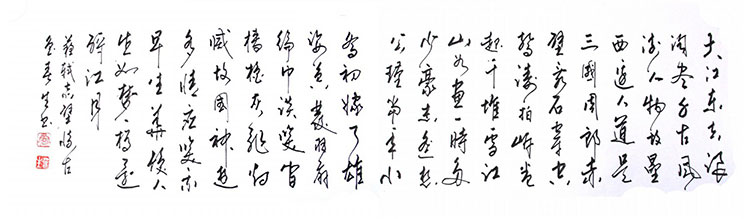 大江东去浪
淘尽千古风
流人物故垒
西边人道是
三國周郎赤
壁乱石穿空
惊涛拍岸卷
起千堆雪江
山如画一时多
少豪杰遥想
公瑾当年小
乔初嫁了雄
姿英发羽扇
纶巾谈笑间
樯橹灰飞烟
灭故國神游
多情应笑我
早生華发人
生如梦一樽还
酹江月
苏轼赤壁怀古